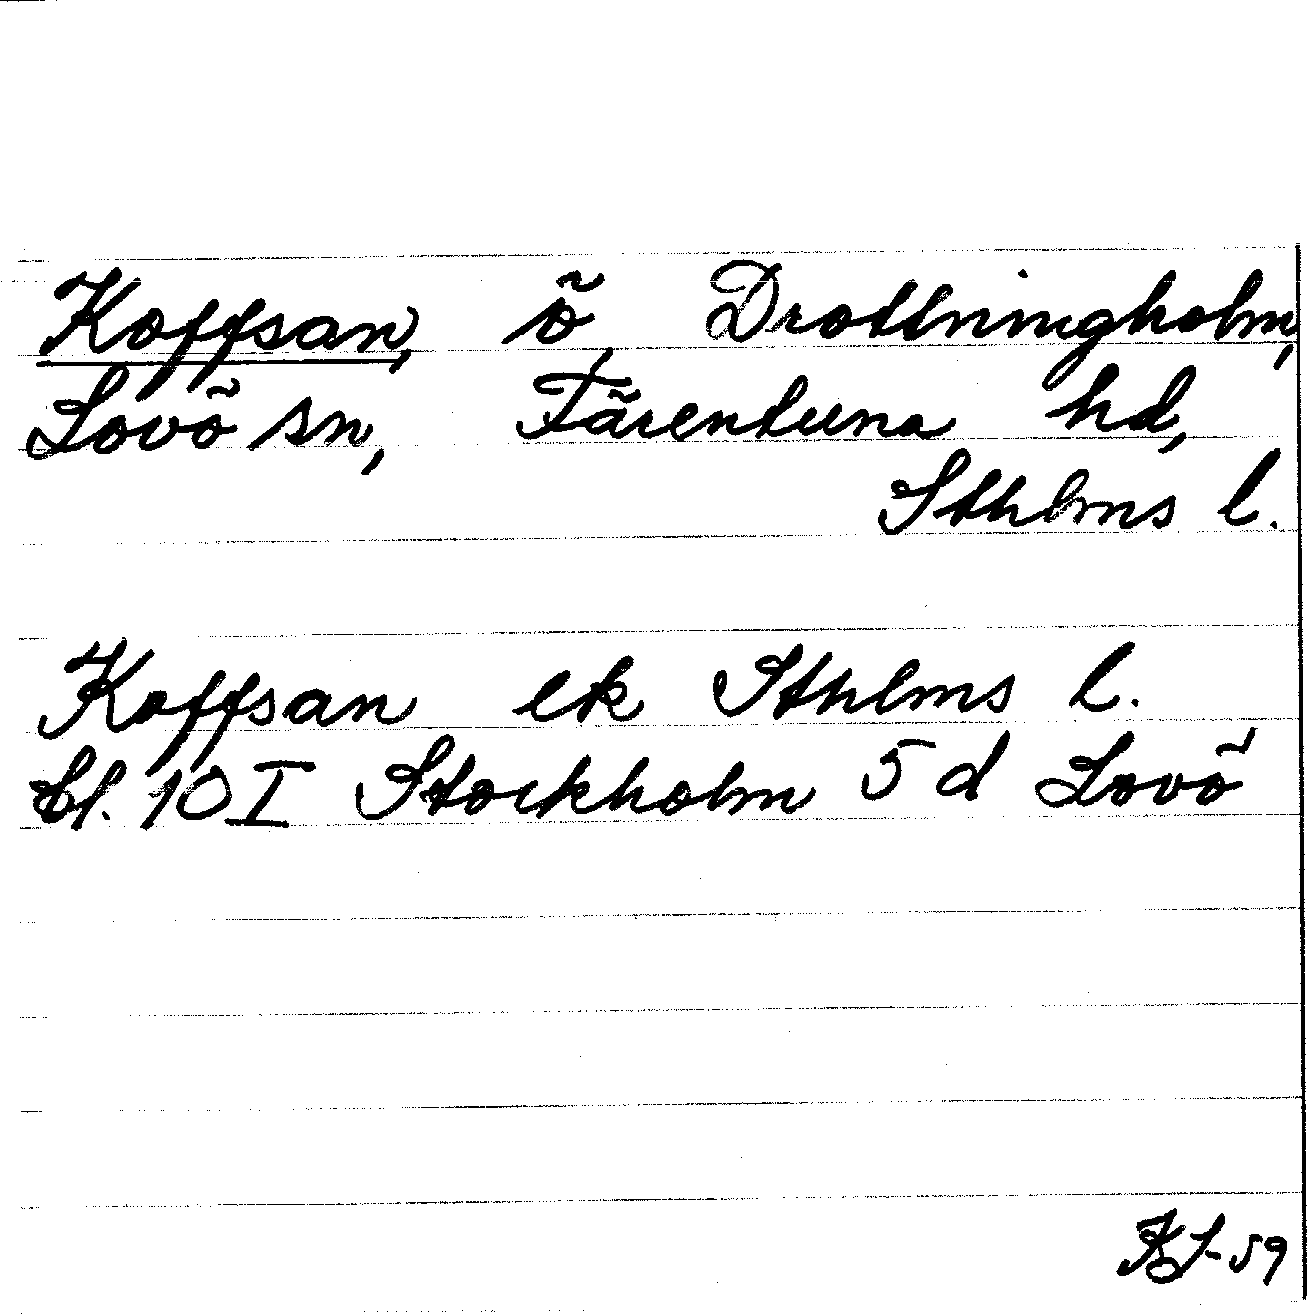 Koffsan, ö, Drottningholm,
Lovö sn, Färentuna hd,
Sthlms l.
Koffsan ek Sthlms l.
bl. 10 I Stockholm 5 d Lovö